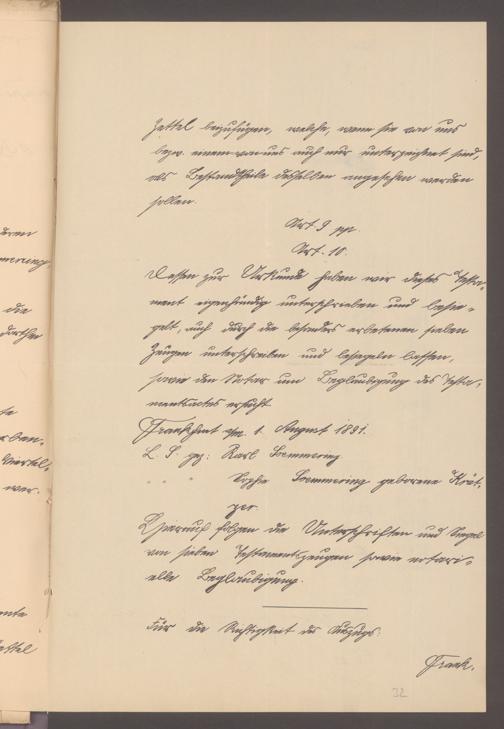 Zettel beizufügen, welche, wenn sie von uns
bezw. einem von uns auch nur unterzeichnet sind,
als Bestandtheile desselben angesehen werden
sollen.
Art 9 pp.
Art. 10.
Dessen zur Urkunde haben wir dieses Testa-
ment eigenhändig unterschrieben und besie-
gelt, auch durch die besonders erbetenen sieben
Zeugen unterschreiben und besiegeln lassen,
sowie den Notar um Beglaubigung des Testa-
mentsactes ersucht.
Frankfurt a/m. 1. August 1891.
L. S. gez: Karl Soemmering
" " " Sophie Soemmering geborene Krät-
zer.
Hierauf folgen die Unterschriften und Siegel
von sieben Testamentszeugen sowie notari-
elle Beglaubigung.
Für die Richtigkeit des Auszugs:
Frank.
32
deren
die
te
Viertel,
war.
ente
Zettel